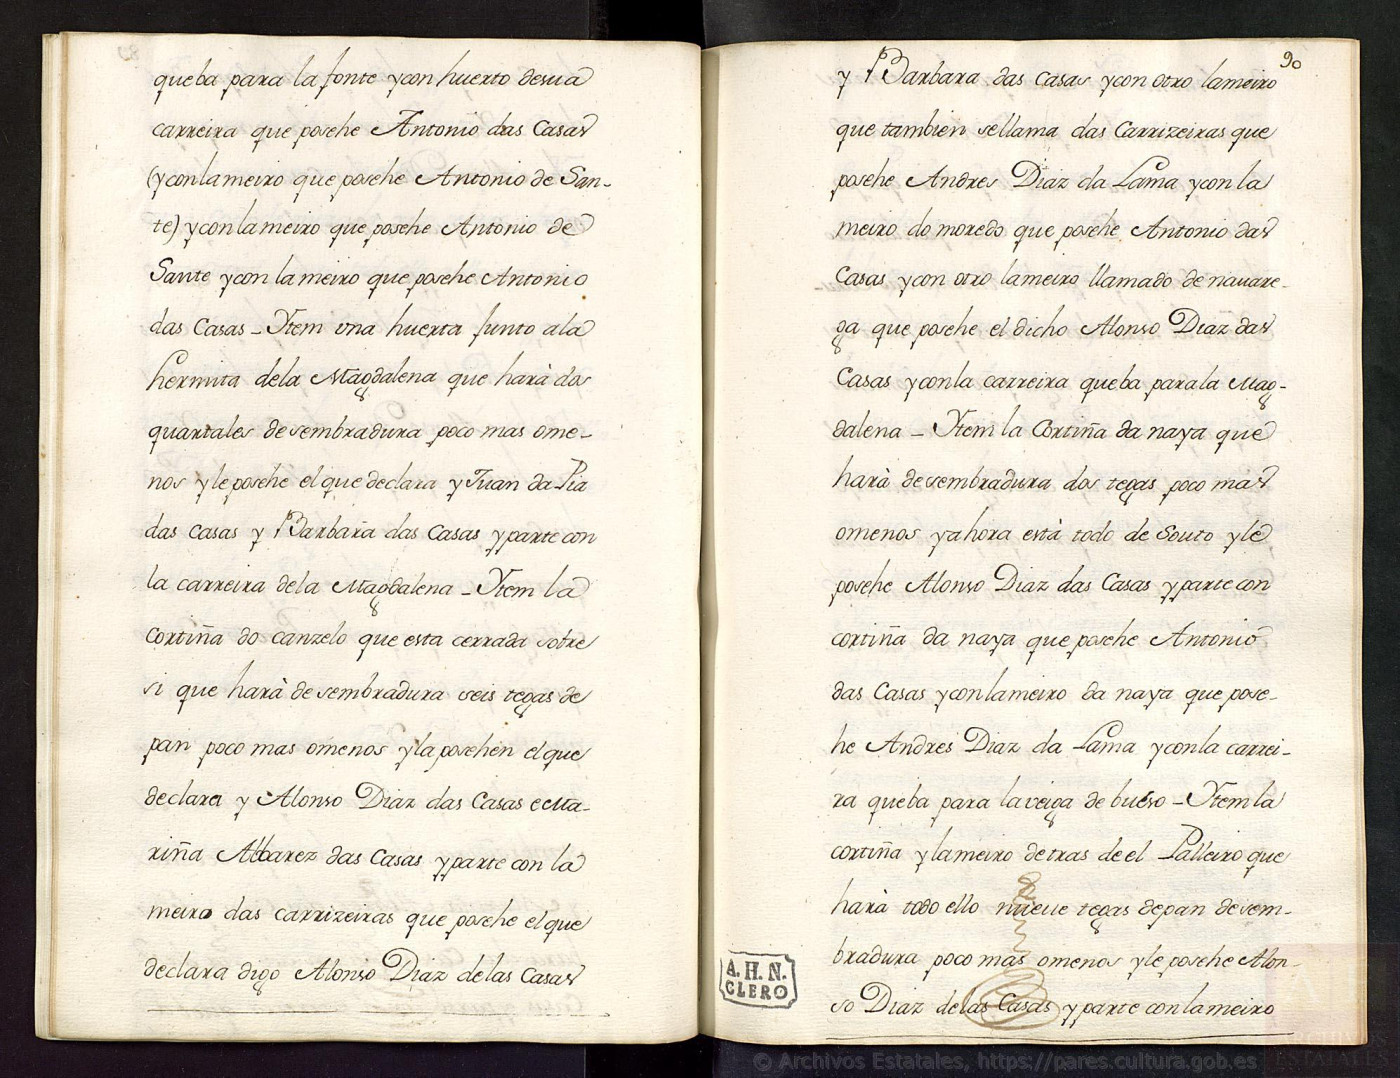 queba para la fonte y con huerto desua
carreira que posehe Antonio das Casas
(y con lameiro que posehe Antonio de San-
te) y con lameiro que posehe Antonio de
Sante y con lameiro que posehe Antonio
das Casas - Ytem vna huerta junto ala
hermita dela Magdalena que harà dos
quartales desembradura poco mas ome-
nos y le posehe el que declara y Juan da Pia
das Casas y Barbara das Casas y parte con
la carreira dela Magdalena - Ytem la
Cortiña do canzelo que esta cerrada sobre
si que harà desembradura seis tegas de
pan poco mas omenos y la posehen el que
declara y Alonso Diaz das Casas e Ma-
riña Albarez das Casas y parte con la
meiro das carrizeiras que posehe el que
declara digo Alonso Diaz delas Casas
90
y Barbara das Casas y con otro lameiro
que tambien sellama das Carrizeiras que
posehe Andres Diaz da Lama y con la
meiro do moredo que posehe Antonio das
Casas y con otro lameiro llamado de nauare-
ga que posehe el dicho Alonso Diaz das
Casas y conla carreira queba parala Mag-
dalena - Ytem la Cortiña da naya que
harà desembradura dos tegas poco mas
omenos y ahora està todo de Souto y le
posehe Alonso Diaz das Casas y parte con
cortiña da naya que posehe Antonio
das Casas y con lameiro da naya que pose-
he Andres Diaz da Lama y conla carrei-
ra queba para laveiga de bueso - Ytem la
cortiña y lameiro detras de el Palleiro que
harà todo ello nueue tegas depan desem-
bradura poco mas omenos y le posehe Alon-
so Diaz delas Casas y parte con lameiro
A.H.N.
CLERO
© Archivos Estatales, https://pares.cultura.gob.es